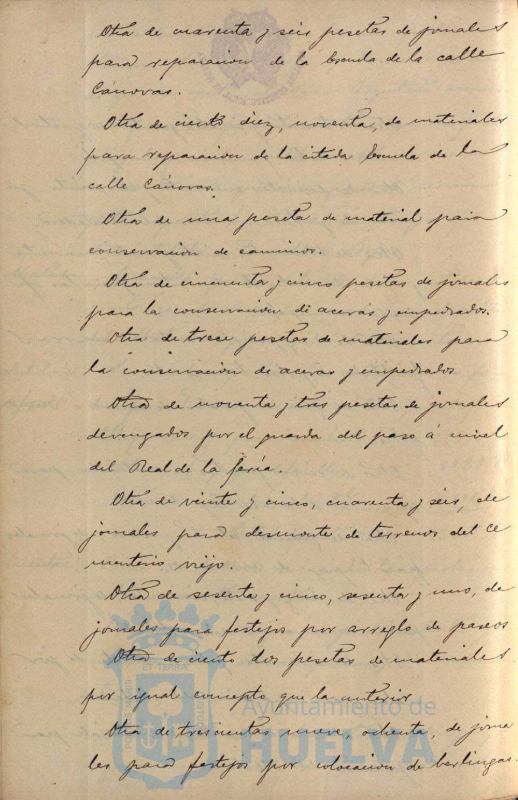 Otra de cuarenta y seis pesetas de jornales
para reparacion de la Escuela de la calle
Cánovas.
Otra de ciento diez, noventa, de materiales
para reparacion de la citada Escuela de la
calle Cánovas.
Otra de una peseta de material para
conservacion de caminos.
Otra de cincuenta y cinco pesetas de jornales
para la conservacion de aceras y empedrados.
Otra de trece pesetas de materiales para
la conservacion de aceras y empedrados
Otra de noventa y tres pesetas de jornales
devengados por el guarda del paso á nivel
del Real de la feria.
Otra de veinte y cinco, cuarenta y seis, de
jornales para desmonte de terrenos del Ce
menterio viejo.
Otra de sesenta y cinco, sesenta y uno, de
jornales para festejos por arreglo de paseos
Otra de ciento dos pesetas de materiales
por igual concepto que la anterior
Otra de trescientas nueve, ochenta, de jorna
les para festejos por colocacion de berlingas.
Ayuntamiento de
HUELVA